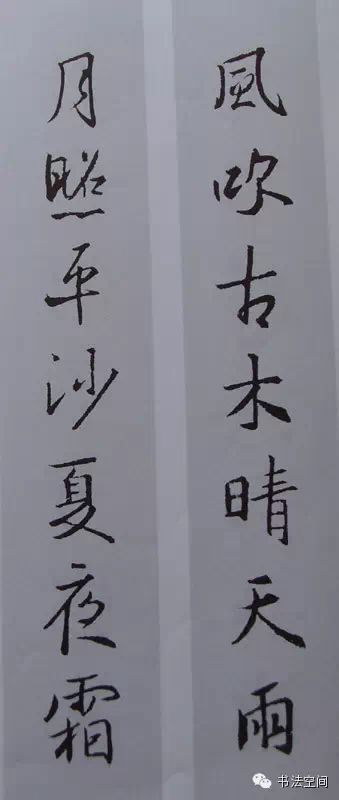 風吹古木晴天雨
月照平沙夏夜霜
书法空间